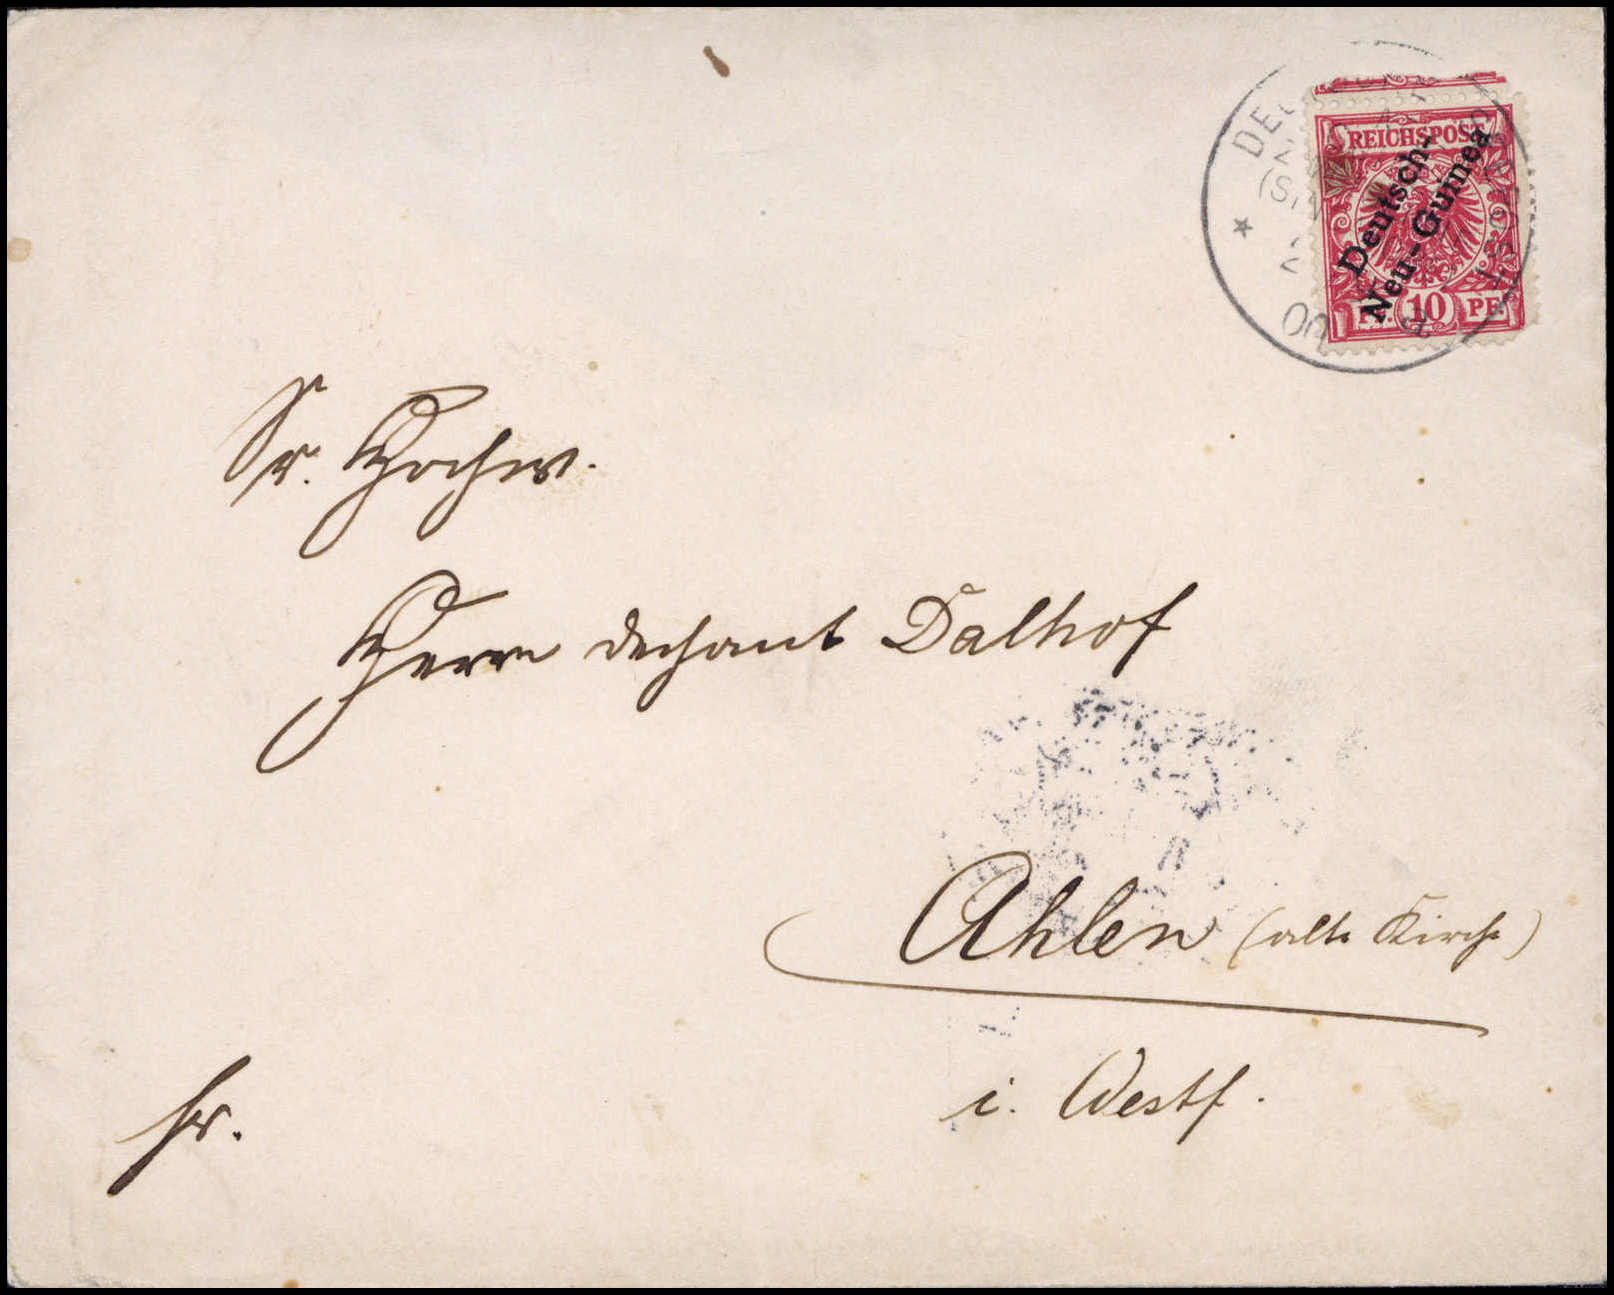 REICHSPOST
Deutsch-
Neu-Guinea
10 PF.
00
Sr. Hochw.
Herrn Dechant Dalhof
Ahlen (alte Kirche)
i. Westf.
fr.